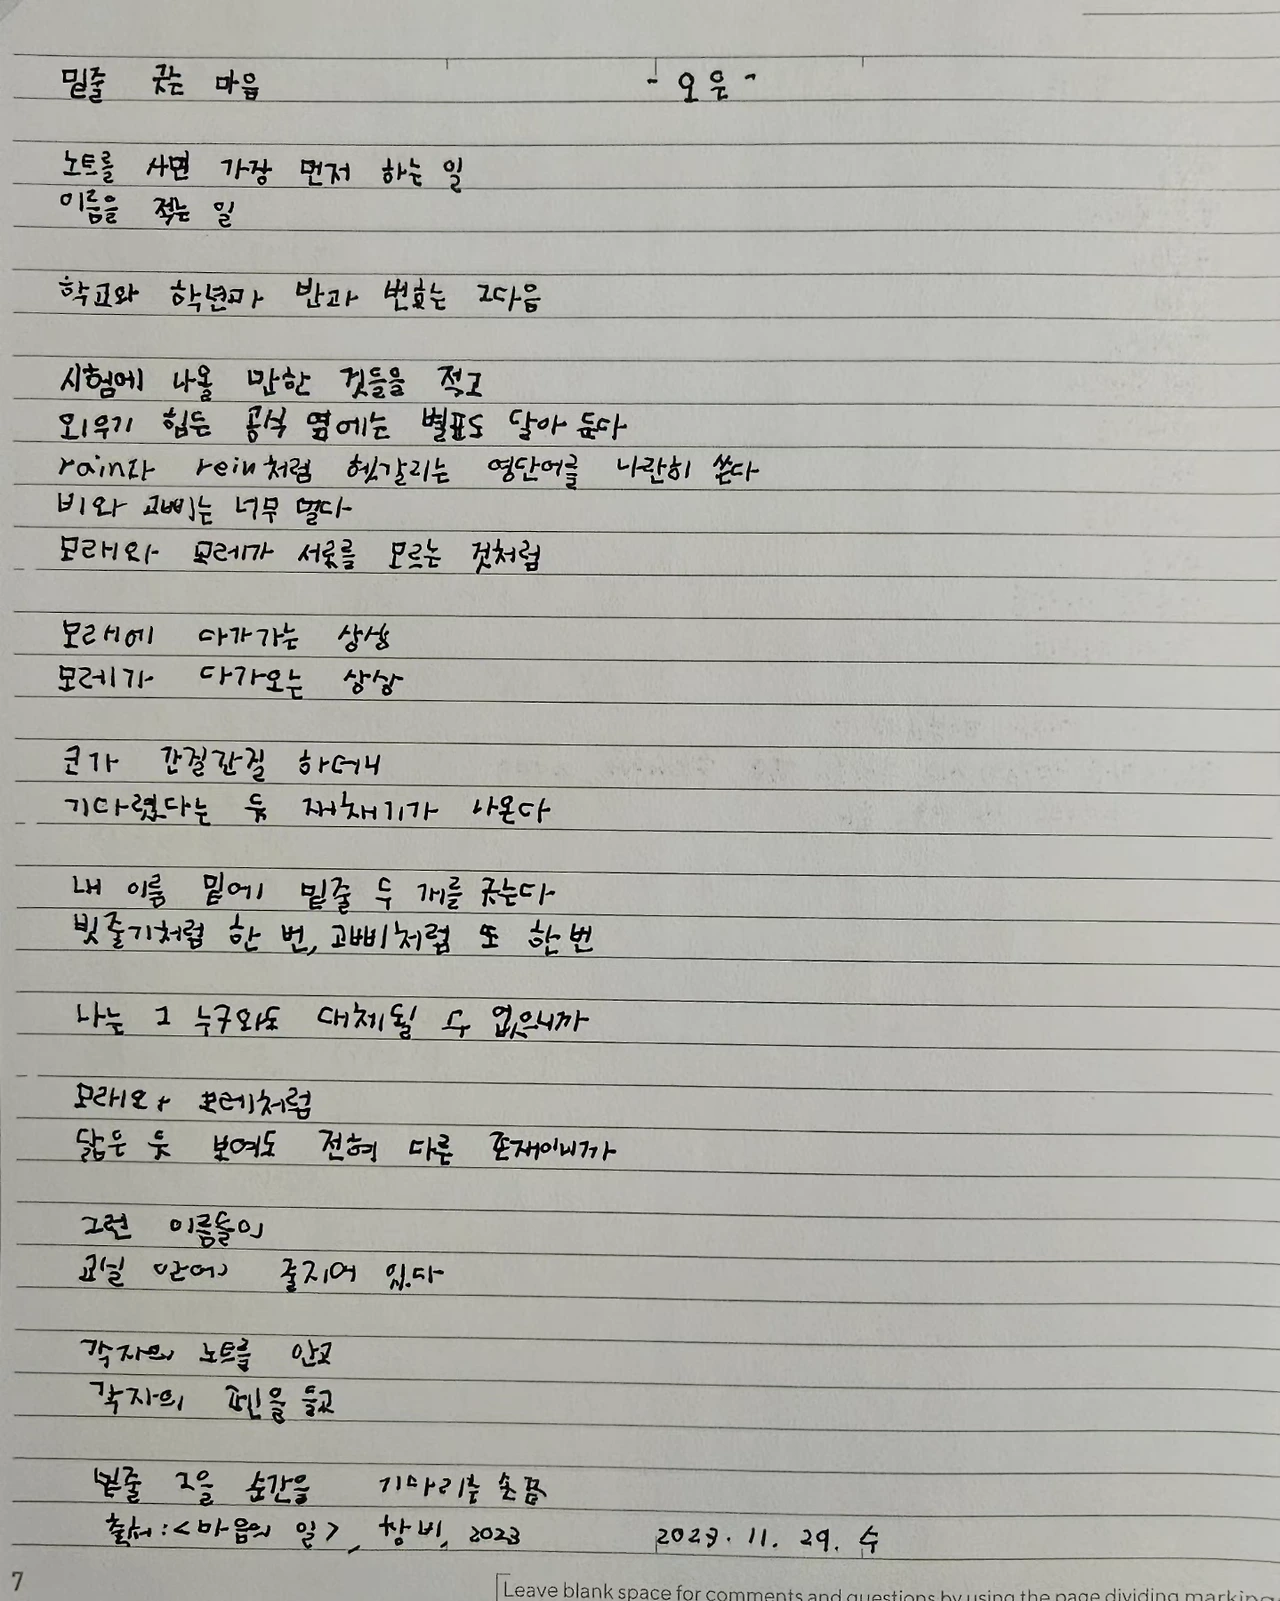 밑줄 긋는 마음 - 오은 -
노트를 사면 가장 먼저 하는 일
이름을 적는 일
학교와 학년과 반과 번호는 그다음
시험에 나올 만한 것들을 적고
외우기 힘든 공식 옆에는 별표도 달아 둔다
rain과 rein처럼 헷갈리는 영단어를 나란히 쓴다
비와 고삐는 너무 멀다
모래와 모레가 서로를 모르는 것처럼
모래에 다가가는 상상
모레가 다가오는 상상
코가 간질간질 하더니
기다렸다는 듯 재채기가 나온다
내 이름 밑에 밑줄 두 개를 긋는다
빗줄기처럼 한 번, 고삐처럼 또 한 번
나는 그 누구와도 대체될 수 없으니까
모래와 모레처럼
닮은 듯 보여도 전혀 다른 존재이니까
그런 이름들이
교실 안에 줄지어 있다
각자의 노트를 안고
각자의 펜을 들고
밑줄 그을 순간을 기다리는 손끝
출처:<마음의 일>, 창비, 2023 2023. 11. 29. 수
7
Leave blank space for comments and questions by using the page dividing marking